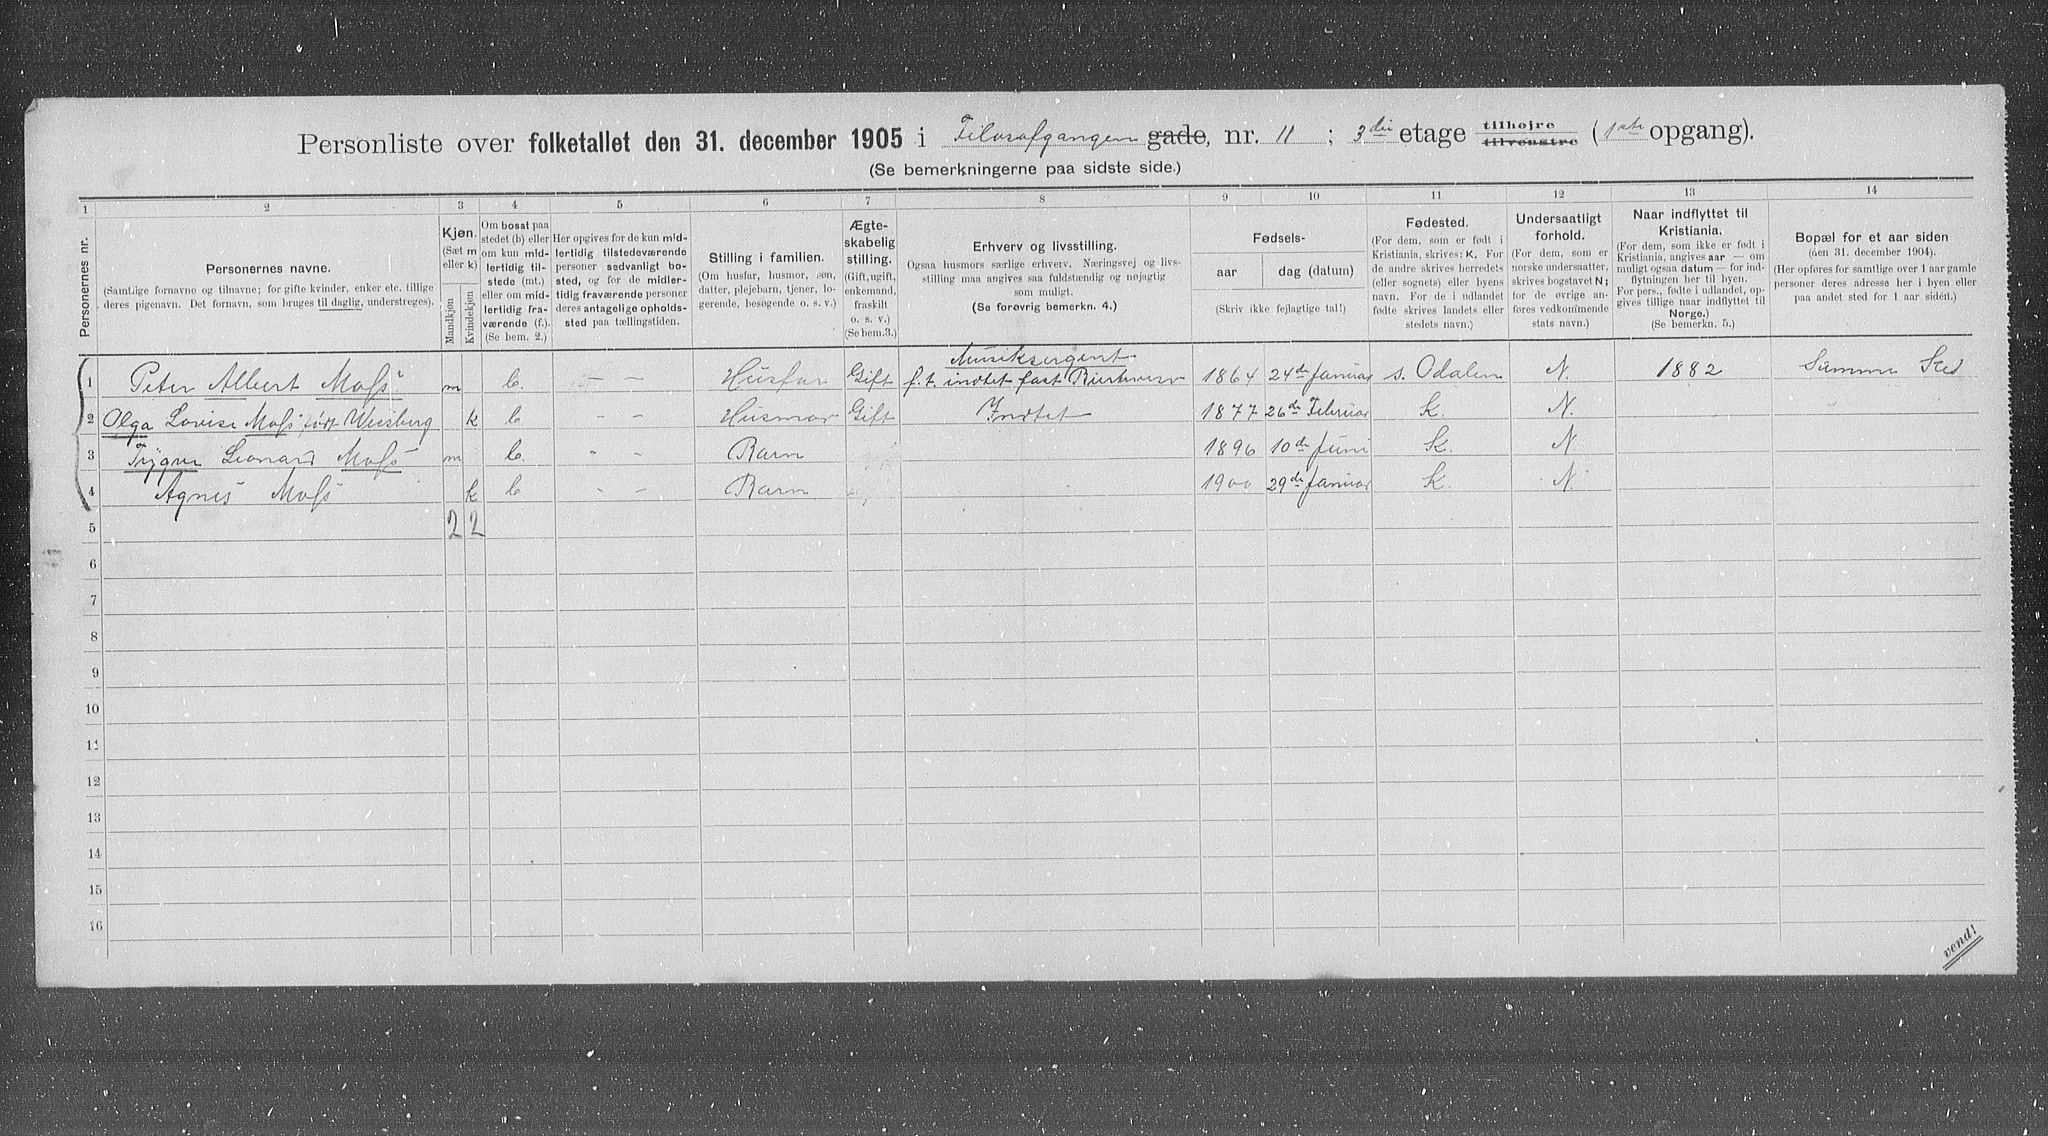 Personliste over folketallet den 31. december 1905 i Filosofgangen gade, nr. 11 ; 3die etage tilhøjre tilvenstre (1ste opgang).
(Se bemerkningerne paa sidste side.)
1 2 3 4 5 6 7 8 9 10 11 12 13 14
Personernes nr.
Personernes navne.
(Samtlige fornavne og tilnavne; for gifte kvinder, enker etc. tillige
deres pigenavn. Det fornavn, som bruges til daglig, understreges).
Kjøn.
(Sæt m
eller k)
Mandkjøn
Kvindekjøn
Om bosat paa
stedet (b) eller
om kun mid-
lertidig til-
stede (mt.)
eller om mid-
lertidig fra-
værende (f.).
(Se bem. 2.)
Her opgives for de kun mid-
lertidig tilstedeværende
personer sedvanligt bo-
sted, og for de midler-
tidig fraværende personer
deres antagelige opholds-
sted paa tællingstiden.
Stilling i familien.
(Om husfar, husmor, søn,
datter, plejebarn, tjener, lo-
gerende, besøgende o. s. v.)
Ægte-
skabelig
stilling.
(Gift, ugift,
enkemand,
fraskilt
o. s. v.)
(Se bem.3.)
Erhverv og livsstilling.
Ogsaa husmors særlige erhverv. Næringsvej og livs-
stilling maa angives saa fuldstændig og nøjagtig
som muligt.
(Se forøvrig bemerkn. 4.)
Fødsels-
aar dag (datum)
(Skriv ikke fejlagtige tal!)
Fødested.
(For dem, som er født i
Kristiania, skrives: K. For
de andre skrives herredets
(eller sognets) eller byens
navn. For de i udlandet
fødte skrives landets eller
stedets navn.)
Undersaatligt
forhold.
(For dem, som er
norske undersaatter,
skrives bogstavet N;
for de øvrige an-
føres vedkommende
stats navn.)
Naar indflyttet til
Kristiania.
(For dem, som ikke er født i
Kristiania, angives aar — om
muligt ogsaa datum — for ind-
flytningen her til byen.
For pers., fødte i udlandet, op-
gives tillige naar indflyttet til
Norge.)
(Se bemerkn. 5.)
Bopæl for et aar siden
(den 31. december 1904).
(Her opføres for samtlige over 1 aar gamle
personer deres adresse her i byen eller
paa andet sted for 1 aar siden.)
Musiksergent
1 Peter Albert Moss m b. — — Husfar Gift f. t. indtet fast 1864 24de Januar s. Odalen N. 1882 Samme Sted
2 Olga Lovise Moss født Weisberg k b — — Husmor Gift Indtet 1877 26de Februar K. N.
3 Trygve Leonard Moss m b. — — Barn 1896 10de Juni K. N
4 Agnes Moss k b — — Barn 1900 29de Januar K. N.
5 2 2
6
7
8
9
10
11
12
13
14
15
16
vend!